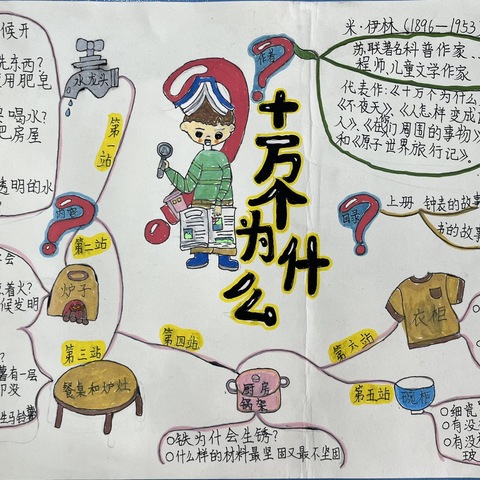 候开
洗东西?
使用肥皂
喝水?
把房屋
透明的水
水龙头
第一站
内容
第二站
炉子
着火?
候发明
第三站
餐桌和炉灶
薯有一层
却没
马铃薯
第四站
厨房
锅架
○铁为什会生锈?
○什么样的材料最坚固又最不坚固
十万个为什么
作者
米·伊林(1896—1953)
苏联著名科普作家、
程师,儿童文学作家
代表作:《十万个为什么》
《不夜天》、《人怎样变成
人》、《我们周围的事物》
和《原子世界旅行记》。
目录
上册 钟表的故事
书的故事
第六站
衣柜
第五站
碗柜
○细瓷
○有没
○有没
玻